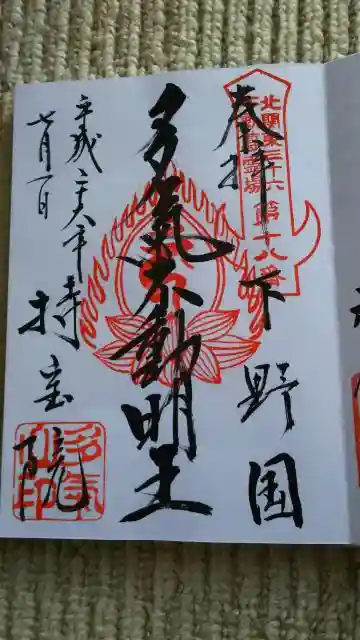 奉拝
下野国
北関東三十六
不動尊霊場
第十八番
多氣不動明王
平成二十六年
七月一日
持宝院